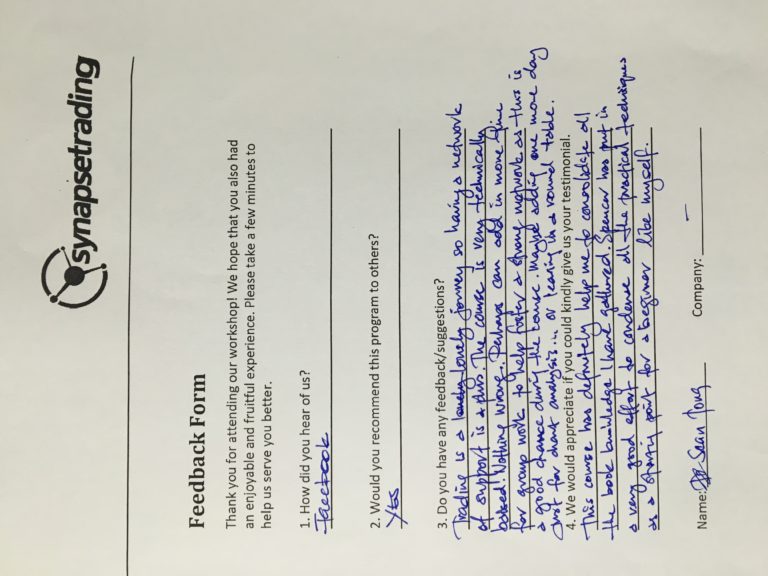 synapsetrading
Feedback Form
Thank you for attending our workshop! We hope that you also had
an enjoyable and fruitful experience. Please take a few minutes to
help us serve you better.
1. How did you hear of us?
Facebook
2. Would you recommend this program to others?
Yes
3. Do you have any feedback/suggestions?
Trading is a lonely journey so having a network
of support is a plus. The course is very technically
based! Nothing wrong. Perhaps can add in more time
for group work to help foster a strong network as this is
a good chance during the course. Maybe adding one more day
just for chart analysis... or in a round table.
4. We would appreciate if you could kindly give us your testimonial.
This course has definitely help me to consolidate all
the book knowledge I have gathered. Spencer has put in
a very good effort to condense all the practical techniques
as a starting point for a beginner like myself.
Name: Sean Company: –